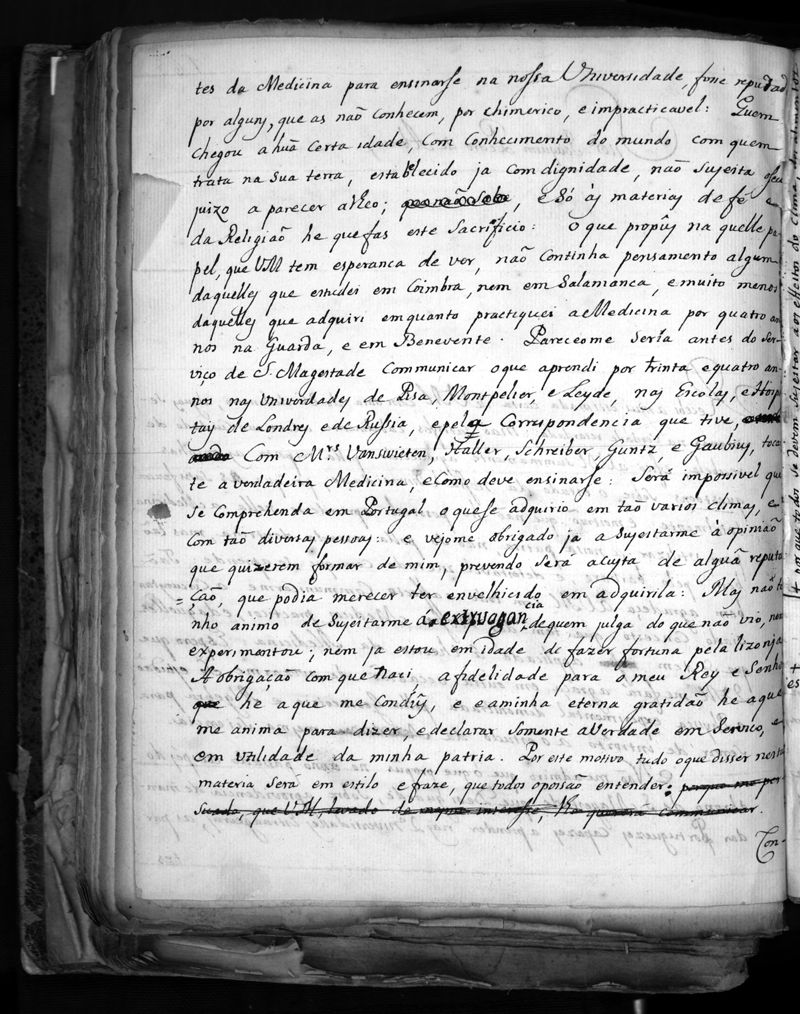 tes da Medicina para ensinarse na nossa Universidade, fosse reputad
por alguns, que as naõ conhecem, por chimerico, e impracticavel: Quem
chegou a huã certa idade, com conhecimento do mundo com quem
trata na sua terra, establecido ja com dignidade, naõ sujeita o seu
juizo a parecer alheo; e só às materias de fé e
da Religiaõ he que fas este Sacrificio: O que propûs na quelle pa-
pel, que VM tem esperanca de ver, naõ continha pensamento algum
daquelles que estudei em Coimbra, nem em Salamanca, e muito menos
daquelles que adquiri emquanto practiquei a Medicina por quatro an
nos na Guarda, e em Benevente. Pareceome seria antes do Ser-
viço de S. Magestade communicar o que aprendi por trinta e quatro an-
nos nas Universidades de Pisa, Montpelier, e Leyde, nas Escolas, e Hosp
taes de Londres e de Russia, e pela Correspondencia que tive,
Com Mrs Vanswieten, Haller, Schreiber, Guntz, e Gaubius, toca
te a verdadeira Medicina, e como deve ensinarse: Será impossivel que
se comprehenda em Portugal o que se adquirio em taõ varios climas, e
com taõ diversas pessoas: e vejome obrigado ja a sujeitarme à opiniaõ
que quizerem formar de mim, prevendo será a custa de alguã reputa
çaõ, que podia merecer ter envelhicido em adquirila: Mas naõ te
nho animo de sujeitarme á extrvagancia de quem julga do que naõ vio, nem
experimentou; nem ja estou em idade de fazer fortuna pela lizonja
A obrigaçaõ com que naci, a fidelidade para o meu Rey e Senho
que he a que me Condûs, e e a minha eterna gratidaõ he a que
me anima para dizer, e declarar somente a Verdade em Servico, e
em utilidade da minha patria. Por este motivo tudo o que disser nesta
materia será em estilo e fraze, que todos o possaõ entender: porque me per
suado, que VM, levado de interesse, communicar.
Con-